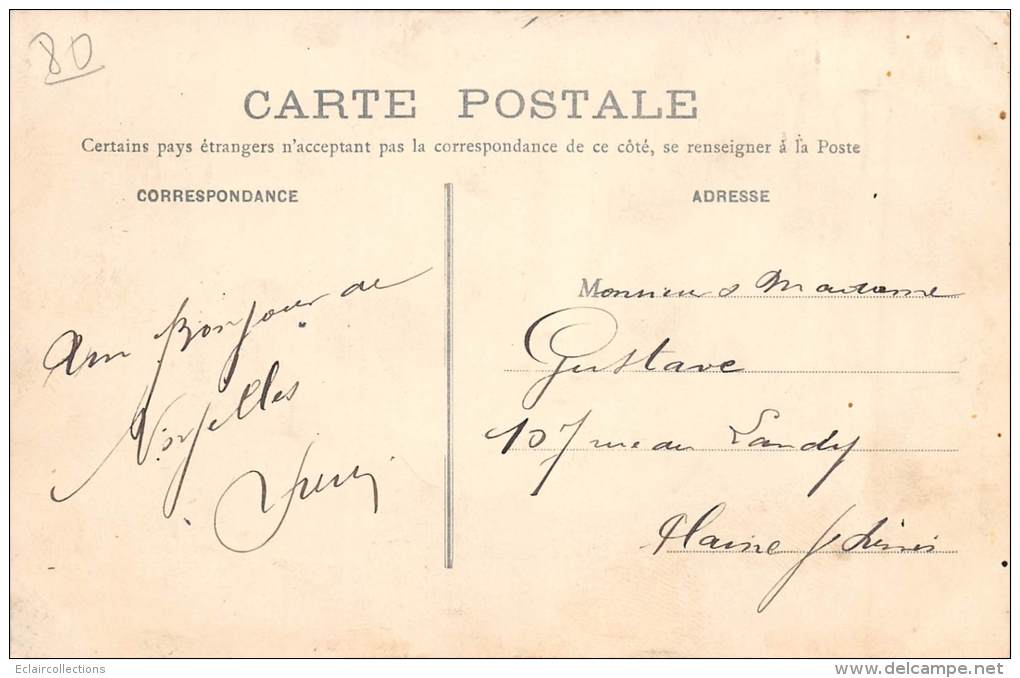 80
CARTE POSTALE
Certains pays étrangers n'acceptant pas la correspondance de ce côté, se renseigner à la Poste
CORRESPONDANCE
Un Bonjour de
Noyelles
ADRESSE
Monsieur & Madame
Gustave
107 rue du Landy
Plaine St Denis
Eclaircollections
www.delcampe.net